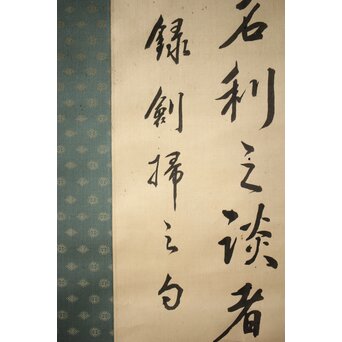 名利之談者
録劍掃之句